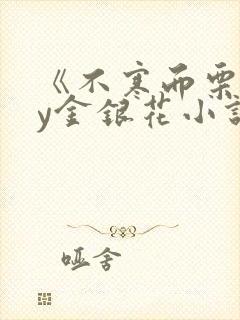 《不寒而栗
y金银花小说
哑舍